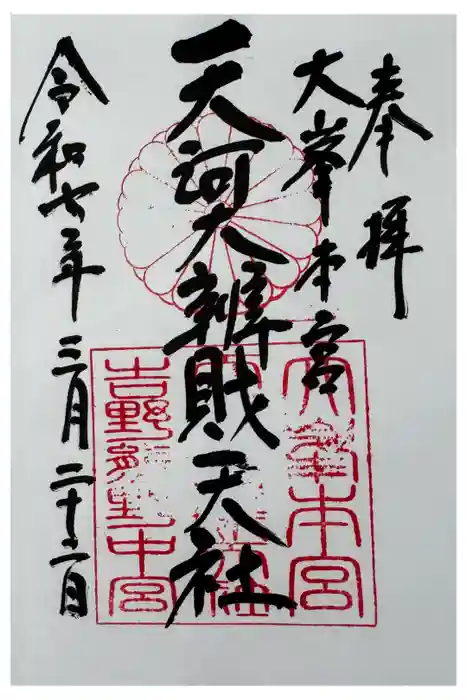 奉拝
大峯本宮
天河大辨財天社
令和七年三月二十二日
大峯本宮
吉野熊野中宮